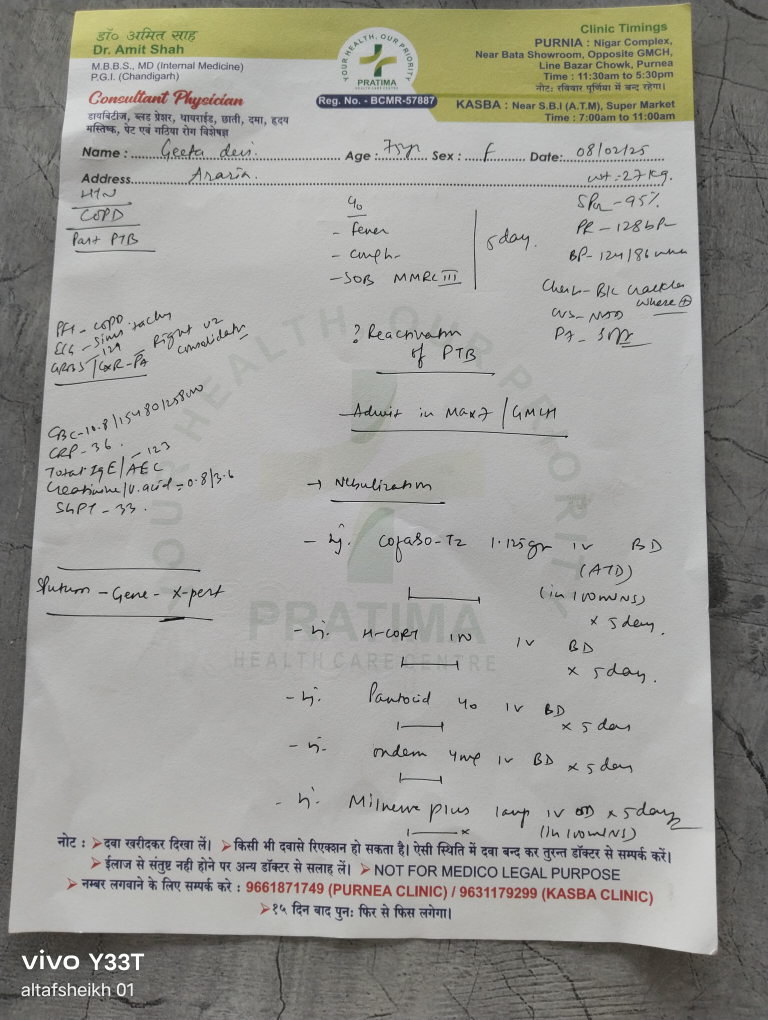 डॉ० अमित साह
Dr. Amit Shah
M.B.B.S., MD (Internal Medicine)
P.G.I. (Chandigarh)
Consultant Physician
डायबिटीज, ब्लड प्रेशर, थायराईड, छाती, दमा, हृदय
मस्तिष्क, पेट एवं गठिया रोग विशेषज्ञ
YOUR HEALTH, OUR PRIORITY
PRATIMA
HEALTH CARE CENTRE
Reg. No. - BCMR-57887
Clinic Timings
PURNIA : Nigar Complex,
Near Bata Showroom, Opposite GMCH,
Line Bazar Chowk, Purnea
Time : 11:30am to 5:30pm
नोट: रविवार पूर्णिया में बन्द रहेगा।
KASBA : Near S.B.I (A.T.M), Super Market
Time : 7:00am to 11:00am
Name : Geeta devi. Age : 75yr Sex : F Date: 08/02/25
Address Araria. wt=27kg.
HTN
COPD
Past PTB
c/o
- fever
- cough
- SOB MMRC III
5 day.
SPO2 - 95%
PR - 128 bpm
BP - 124/86 mmhg
Chest - B/L crackles
CVS - NAD
PA - Soft
PFT - COPD
ECG - Sinus tachy
GRBS - 129
CXR - PA - Right UZ
consolidatn
? Reactivation
of PTB
Admit in Max7 / GMCH
CBC - 10.8 / 15480 /
CRP - 36.
Total IgE / AEC - 123
Creatinine / U.acid = 0.8/3.6
SGPT - 33.
→ Nebulization
- Inj. Cofaso-TZ 1.125gr IV BD
(ATD)
(in 100ml NS)
x 5 day.
Sputum - Gene - X-pert
- Inj. H-CORT 100 IV BD
x 5 day.
- Inj. Pantocid 40 IV BD
x 5 day
- Inj. ondem 4mg IV BD x 5 day
- Inj. Milnerve plus 1amp IV OD x 5 days
(in 100ml NS)
YOUR HEALTH, OUR PRIORITY
PRATIMA
HEALTH CARE CENTRE
नोट : ➤दवा खरीदकर दिखा लें। ➤किसी भी दवासे रिएक्शन हो सकता है। ऐसी स्थिति में दवा बन्द कर तुरन्त डॉक्टर से सम्पर्क करें।
➤ईलाज से संतुष्ट नही होने पर अन्य डॉक्टर से सलाह लें। ➤NOT FOR MEDICO LEGAL PURPOSE
➤नम्बर लगवाने के लिए सम्पर्क करे : 9661871749 (PURNEA CLINIC) / 9631179299 (KASBA CLINIC)
➤१५ दिन बाद पुन: फिर से फिस लगेगा।
vivo Y33T
altafsheikh 01